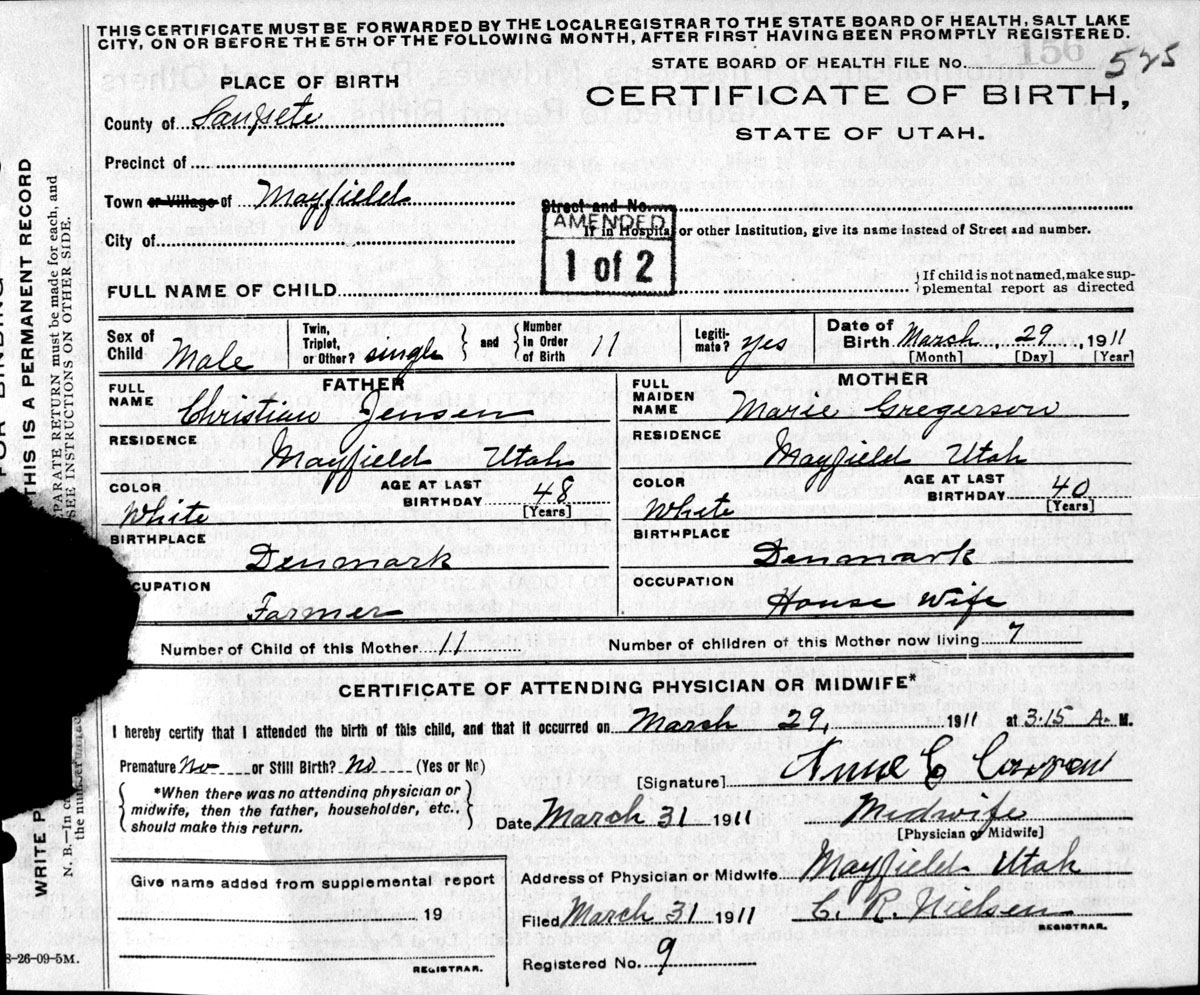 THIS CERTIFICATE MUST BE FORWARDED BY THE LOCAL REGISTRAR TO THE STATE BOARD OF HEALTH, SALT LAKE
CITY, ON OR BEFORE THE 5TH OF THE FOLLOWING MONTH, AFTER FIRST HAVING BEEN PROMPTLY REGISTERED.
156
STATE BOARD OF HEALTH FILE NO. 525
PLACE OF BIRTH
CERTIFICATE OF BIRTH,
STATE OF UTAH.
County of Sanpete
Precinct of
Town or Village of Mayfield
Street and No.
AMENDED
If in Hospital or other Institution, give its name instead of Street and number.
City of
1 of 2
FULL NAME OF CHILD
If child is not named, make sup-
plemental report as directed
Sex of Child Male Twin, Triplet, or Other? single and Number in Order of Birth 11 Legiti-mate? yes Date of Birth March 29, 1911
[Month] [Day] [Year]
FATHER
FULL NAME Christian Jensen
RESIDENCE
Mayfield Utah
COLOR White AGE AT LAST BIRTHDAY 48
[Years]
BIRTHPLACE
Denmark
OCCUPATION
Farmer
MOTHER
FULL MAIDEN NAME Marie Gregerson
RESIDENCE
Mayfield Utah
COLOR White AGE AT LAST BIRTHDAY 40
[Years]
BIRTHPLACE
Denmark
OCCUPATION
House Wife
Number of Child of this Mother 11 Number of children of this Mother now living 7
CERTIFICATE OF ATTENDING PHYSICIAN OR MIDWIFE*
I hereby certify that I attended the birth of this child, and that it occurred on March 29, 1911 at 3.15 A. M.
Premature No or Still Birth? No (Yes or No)
*When there was no attending physician or
midwife, then the father, householder, etc.,
should make this return.
[Signature] Anne C
Date March 31 1911 Midwife
[Physician or Midwife]
Address of Physician or Midwife Mayfield Utah
Give name added from supplemental report
19
REGISTRAR.
Filed March 31 1911 C. R. Nielsen
REGISTRAR.
Registered No. 9
FOR BINDING
THIS IS A PERMANENT RECORD
PARATE RETURN must be made for each, and
SEE INSTRUCTIONS ON OTHER SIDE.
WRITE P
N. B.—In c
the number
8-26-09-5M.